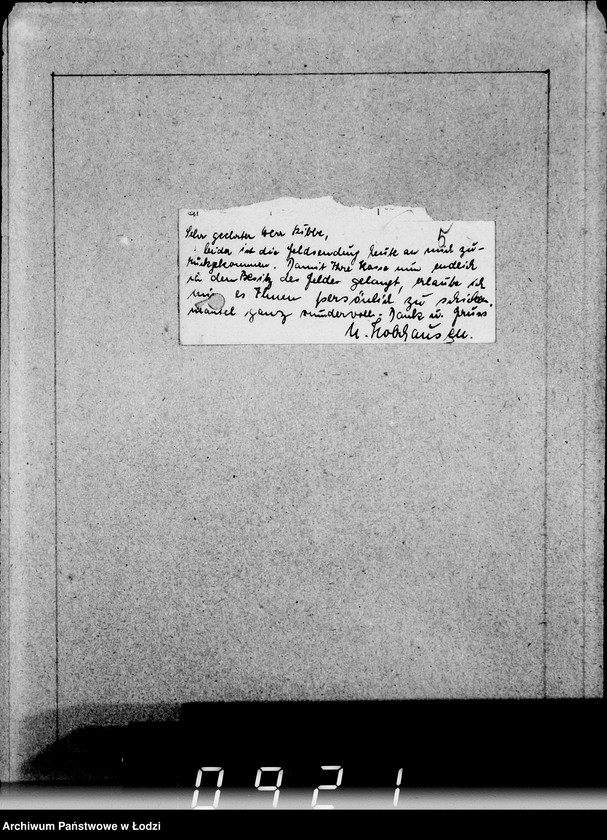 5
Sehr geehrter Herr Ribbe,
leider ist die Geldsendung heute an mich zu-
rückgekommen. Damit Ihre Kasse nun endlich
in den Besitz des Geldes gelangt, erlaube ich
mir es Ihnen persönlich zu schicken.
Mantel ganz wundervoll. Dank u. Gruss
0921
Archiwum Państwowe w Łodzi